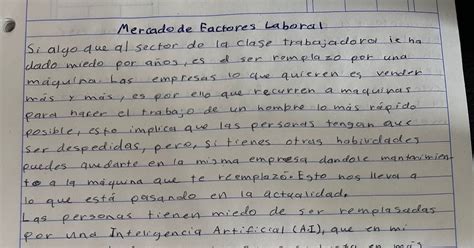 Mercado de Factores Laboral
Si algo que al sector de la clase trabajadora le ha
dado miedo por años, es el ser remplazo por una
máquina. Las empresas lo que quieren es vender
más y más, es por ello que recurren a maquinas
para hacer el trabajo de un hombre lo más rápido
posible, esto implica que las personas tengan que
ser despedidas, pero, si tienes otras habividades
puedes quedarte en la misma empresa dandole mantenimien-
to a la máquina que te reemplazó. Esto nos lleva a
lo que está pasando en la actualidad.
Las personas tienen miedo de ser remplasadas
por una Inteligencia Artificial (AI), que en mi